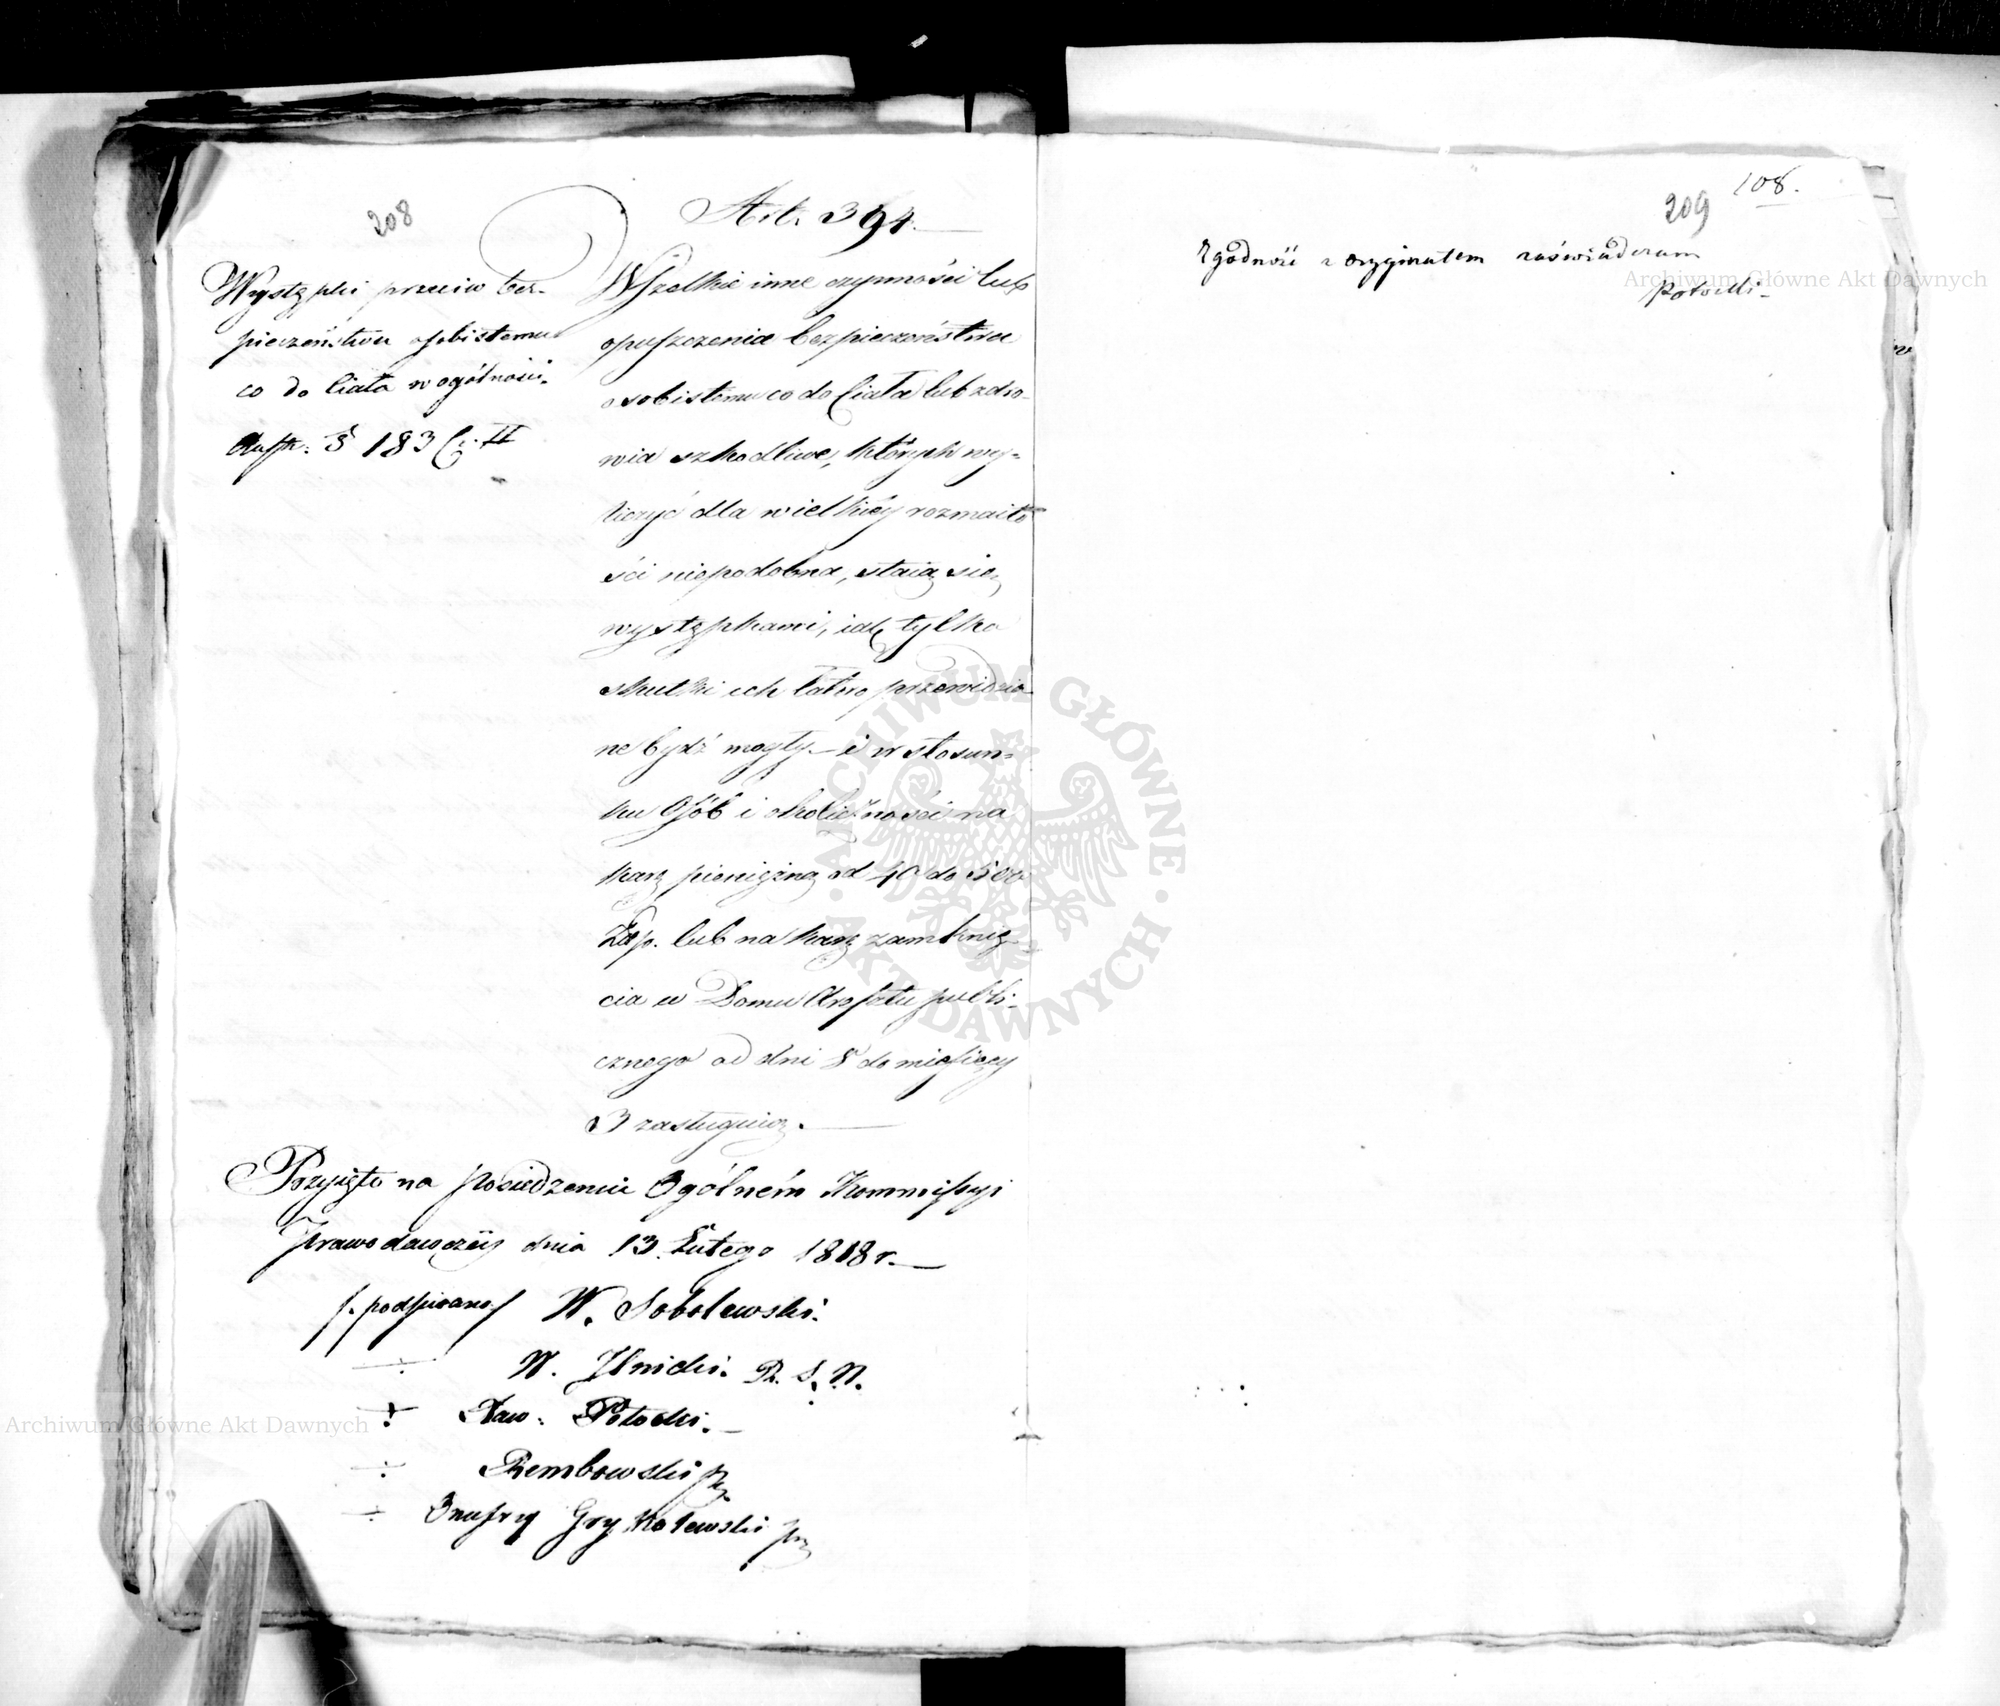 208
Art. 394.
Występki przeciw bez-
pieczeństwu osobistemu
co do Ciała w ogólności.
Austr. § 183 Cz. II
Wszelkie inne czynności lub
opuszczenia bezpieczeństwu
osobistemu co do Ciała lub zdro-
wia szkodliwe, których wy-
liczyć dla wielkiey rozmaito
ści niepodobna, staią się
występkami, iak tylko
skutki ich łatwo przewidzia-
ne bydź mogły - i w stosun-
ku Osób i okoliczności na
karę pieniężną od 40 do 500
Złp. lub na karę zamknię-
cia w Domu Aresztu publi-
cznego od dni 8 do miesięcy
3 zasługuią.
Przyięto na posiedzeniu Ogólném Kommissyi
Prawodawczéy dnia 13. Lutego 1818 r.
/. podpisano / W. Sobolewski.
÷ W. Ilnicki. R. S. N.
÷ Xaw. Potocki.
÷ Rembowski
÷ Onufry Grykolewski
108.
209
Zgodność z oryginałem zaświadczam
Potocki
Archiwum Główne Akt Dawnych
Archiwum Główne Akt Dawnych
ARCHIWUM GŁÓWNE · AKT DAWNYCH ·